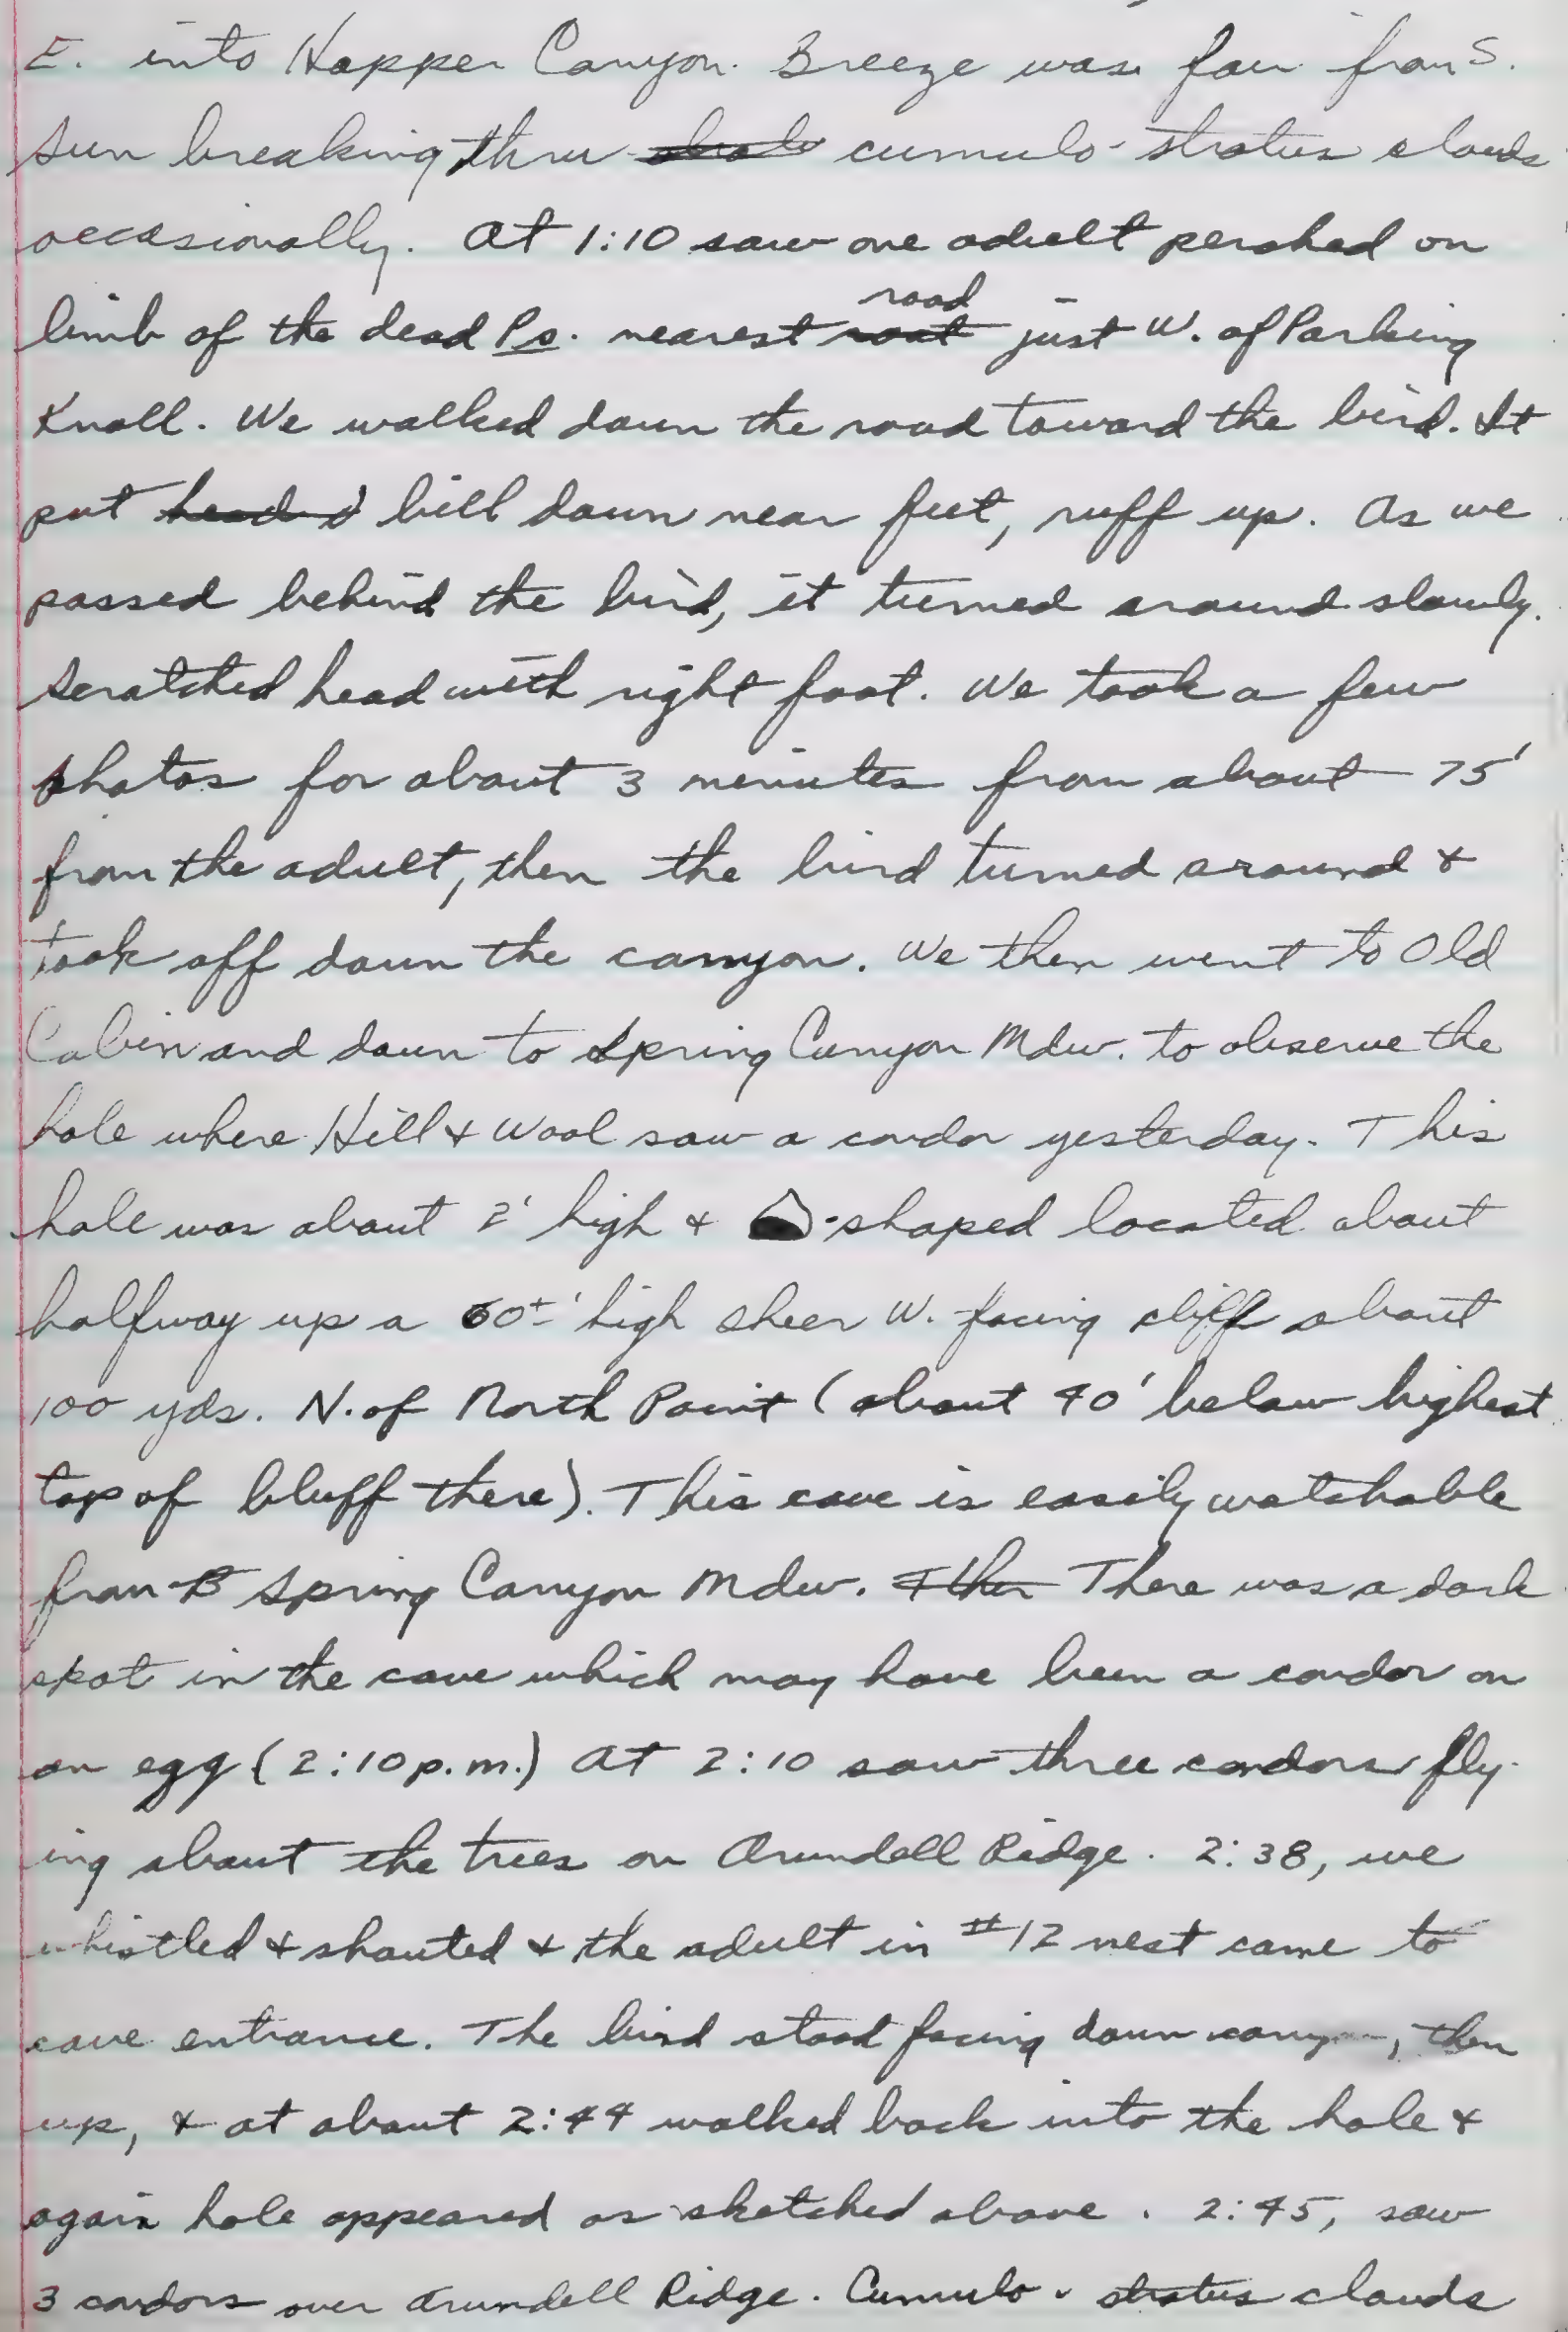 E. into Hopper Canyon. Breeze was fair from S.
Sun breaking thru cumulo-stratus clouds
occasionally. At 1:10 saw one adult perched on
limb of the dead Ps. nearest road just W. of Parking
Knoll. We walked down the road toward the bird. It
put head & bill down near feet, ruff up. As we
passed behind the bird, it turned around slowly.
Scratched head with right foot. We took a few
photos for about 3 minutes from about 75'
from the adult, then the bird turned around &
took off down the canyon. We then went to Old
Cabin and down to Spring Canyon Mdw. to observe the
hole where Hill & Wool saw a condor yesterday. This
hole was about 2' high & -shaped located about
halfway up a 60±' high sheer W.-facing cliff about
100 yds. N. of North Point (about 40' below highest
top of bluff there). This cave is easily watchable
from B Spring Canyon Mdw. There was a dark
spot in the cave which may have been a condor on
an egg (2:10 p.m.) At 2:10 saw three condors fly-
ing about the trees on Arundell Ridge. 2:38, we
whistled & shouted & the adult in #12 nest came to
cave entrance. The bird stood facing down canyon, then
up, & at about 2:44 walked back into the hole &
again hole appeared as sketched above. 2:45, saw
3 condors over Arundell Ridge. Cumulo-stratus clouds